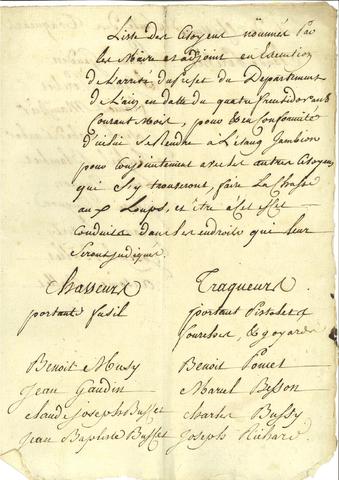 Liste des Citoyens nommés Par
les Maire et adjoint en Execution
de L'arreté du Prefet du Departement
de L'ain en datte du quatre fructidor an 8
Courant Mois, pour En conformité
d'icelui se Rendre à L'etang Jambion
pour conjointement avec les autres Citoyens
qui s'y trouveront, faire La Chasse
aux Loups, et être a Cet effet
Conduits dans les endroits qui leur
Seront indiqués
Chasseurs Traqueurs
portant fusil portant Pistolet
fourches, & goyards
Benoit Musy Benoit Poncet
Jean Gaudin Marcel Besson
Claude Joseph Buffet Charles Bussy
Jean Baptiste Buffet Joseph Richard